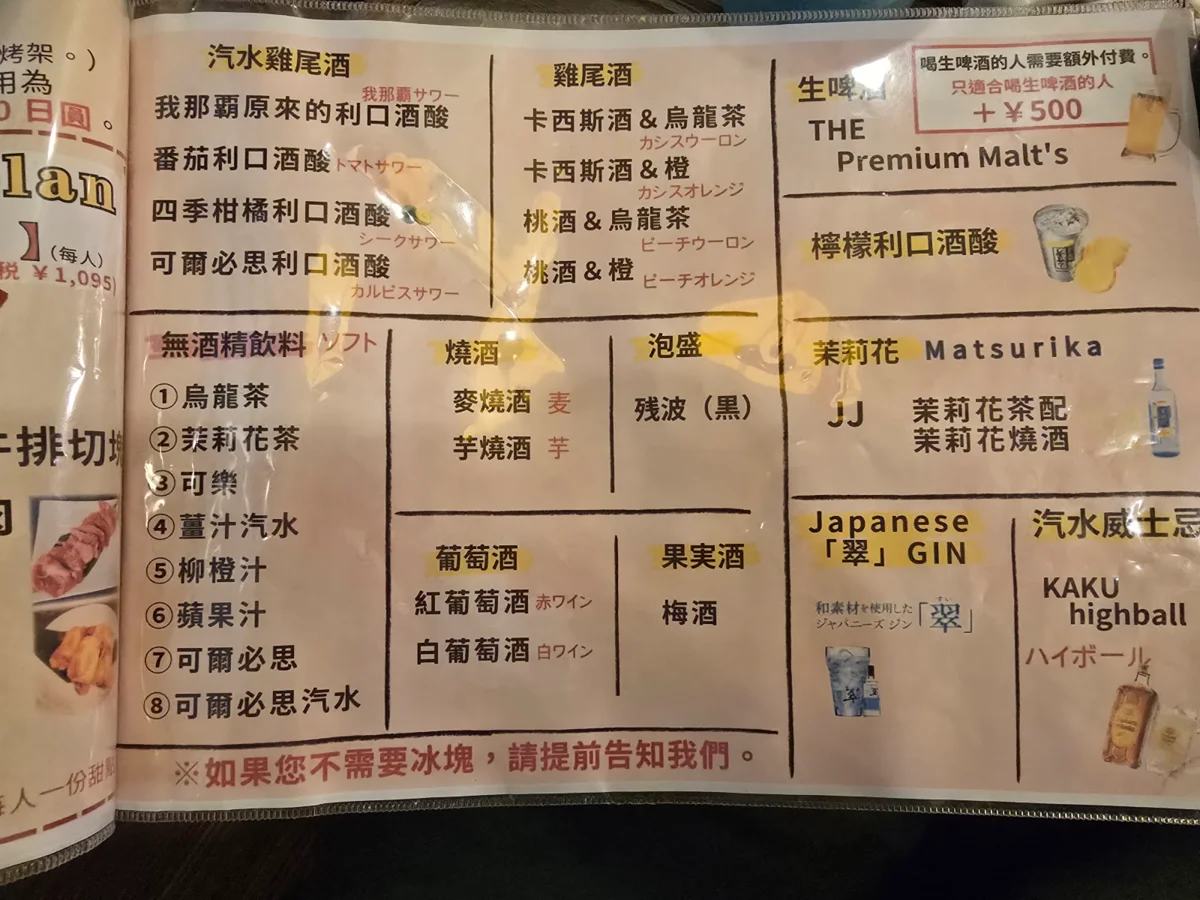 烤架。)
用為
0 日圓。
lan
】(每人)
税 ￥1,095)
牛排切塊
肉
每人一份甜點
汽水雞尾酒
我那霸サワー
我那霸原來的利口酒酸
番茄利口酒酸 トマトサワー
四季柑橘利口酒酸
シークサワー
可爾必思利口酒酸
カルピスサワー
雞尾酒
卡西斯酒＆烏龍茶
カシスウーロン
卡西斯酒＆橙
カシスオレンジ
桃酒＆烏龍茶
ピーチウーロン
桃酒＆橙 ピーチオレンジ
生啤酒
喝生啤酒的人需要額外付費。
只適合喝生啤酒的人
＋￥500
THE
Premium Malt's
檸檬利口酒酸
無酒精飲料 ソフト
①烏龍茶
②茉莉花茶
③可樂
④薑汁汽水
⑤柳橙汁
⑥蘋果汁
⑦可爾必思
⑧可爾必思汽水
燒酒
麥燒酒 麦
芋燒酒 芋
泡盛
残波（黒）
葡萄酒
紅葡萄酒 赤ワイン
白葡萄酒 白ワイン
果実酒
梅酒
茉莉花 Matsurika
JJ 茉莉花茶配
茉莉花燒酒
Japanese
「翠」GIN
和素材を使用した
ジャパニーズ ジン「翠」
すい
汽水威士忌
KAKU
highball
ハイボール
※如果您不需要冰塊，請提前告知我們。